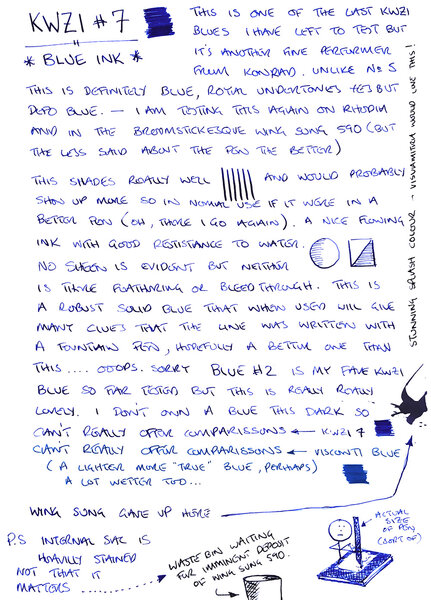 KWZI #7
* BLUE INK *
THIS IS ONE OF THE LAST KWZI
BLUES I HAVE LEFT TO TEST BUT
IT'S ANOTHER FINE PERFORMER
FROM KONRAD. UNLIKE No 5
THIS IS DEFINITELY BLUE, ROYAL UNDERTONES YES BUT
DEFO BLUE. — I AM TESTING THIS AGAIN ON RHODIA
AND IN THE BROOMSTICKESQUE WING SUNG 590 (BUT
THE LESS SAID ABOUT THE PEN THE BETTER)
THIS SHADES REALLY WELL AND WOULD PROBABLY
SHOW UP MORE SO IN NORMAL USE IF IT WERE IN A
BETTER PEN (OH, THERE I GO AGAIN). A NICE FLOWING
INK WITH GOOD RESISTANCE TO WATER.
NO SHEEN IS EVIDENT BUT NEITHER
IS THERE FEATHERING OR BLEEDTHROUGH. THIS IS
A ROBUST SOLID BLUE THAT WHEN USED WILL GIVE
MANY CLUES THAT THE LINE WAS WRITTEN WITH
A FOUNTAIN PEN, HOPEFULLY A BETTER ONE THAN
THIS .... OOOPS. SORRY BLUE #2 IS MY FAVE KWZI
BLUE SO FAR TESTED BUT THIS IS REALLY REALLY
LOVELY. I DON'T OWN A BLUE THIS DARK SO
CAN'T REALLY OFFER COMPARISSONS ← KWZI 7
CAN'T REALLY OFFER COMPARISSONS ← VISCONTI BLUE
(A LIGHTER MORE "TRUE" BLUE, PERHAPS)
A LOT WETTER TOO...
STUNNING SPLASH COLOUR - VISVAMITRA WOULD LOVE THIS!
WING SUNG GAVE UP HERE
P.S INTERNAL SAC IS
HEAVILY STAINED
NOT THAT IT
MATTERS ..........
WASTE BIN WAITING
FOR IMMINENT DEPOSIT
OF WING SUNG 590.
ACTUAL
SIZE
OF PEN
(SORT OF)